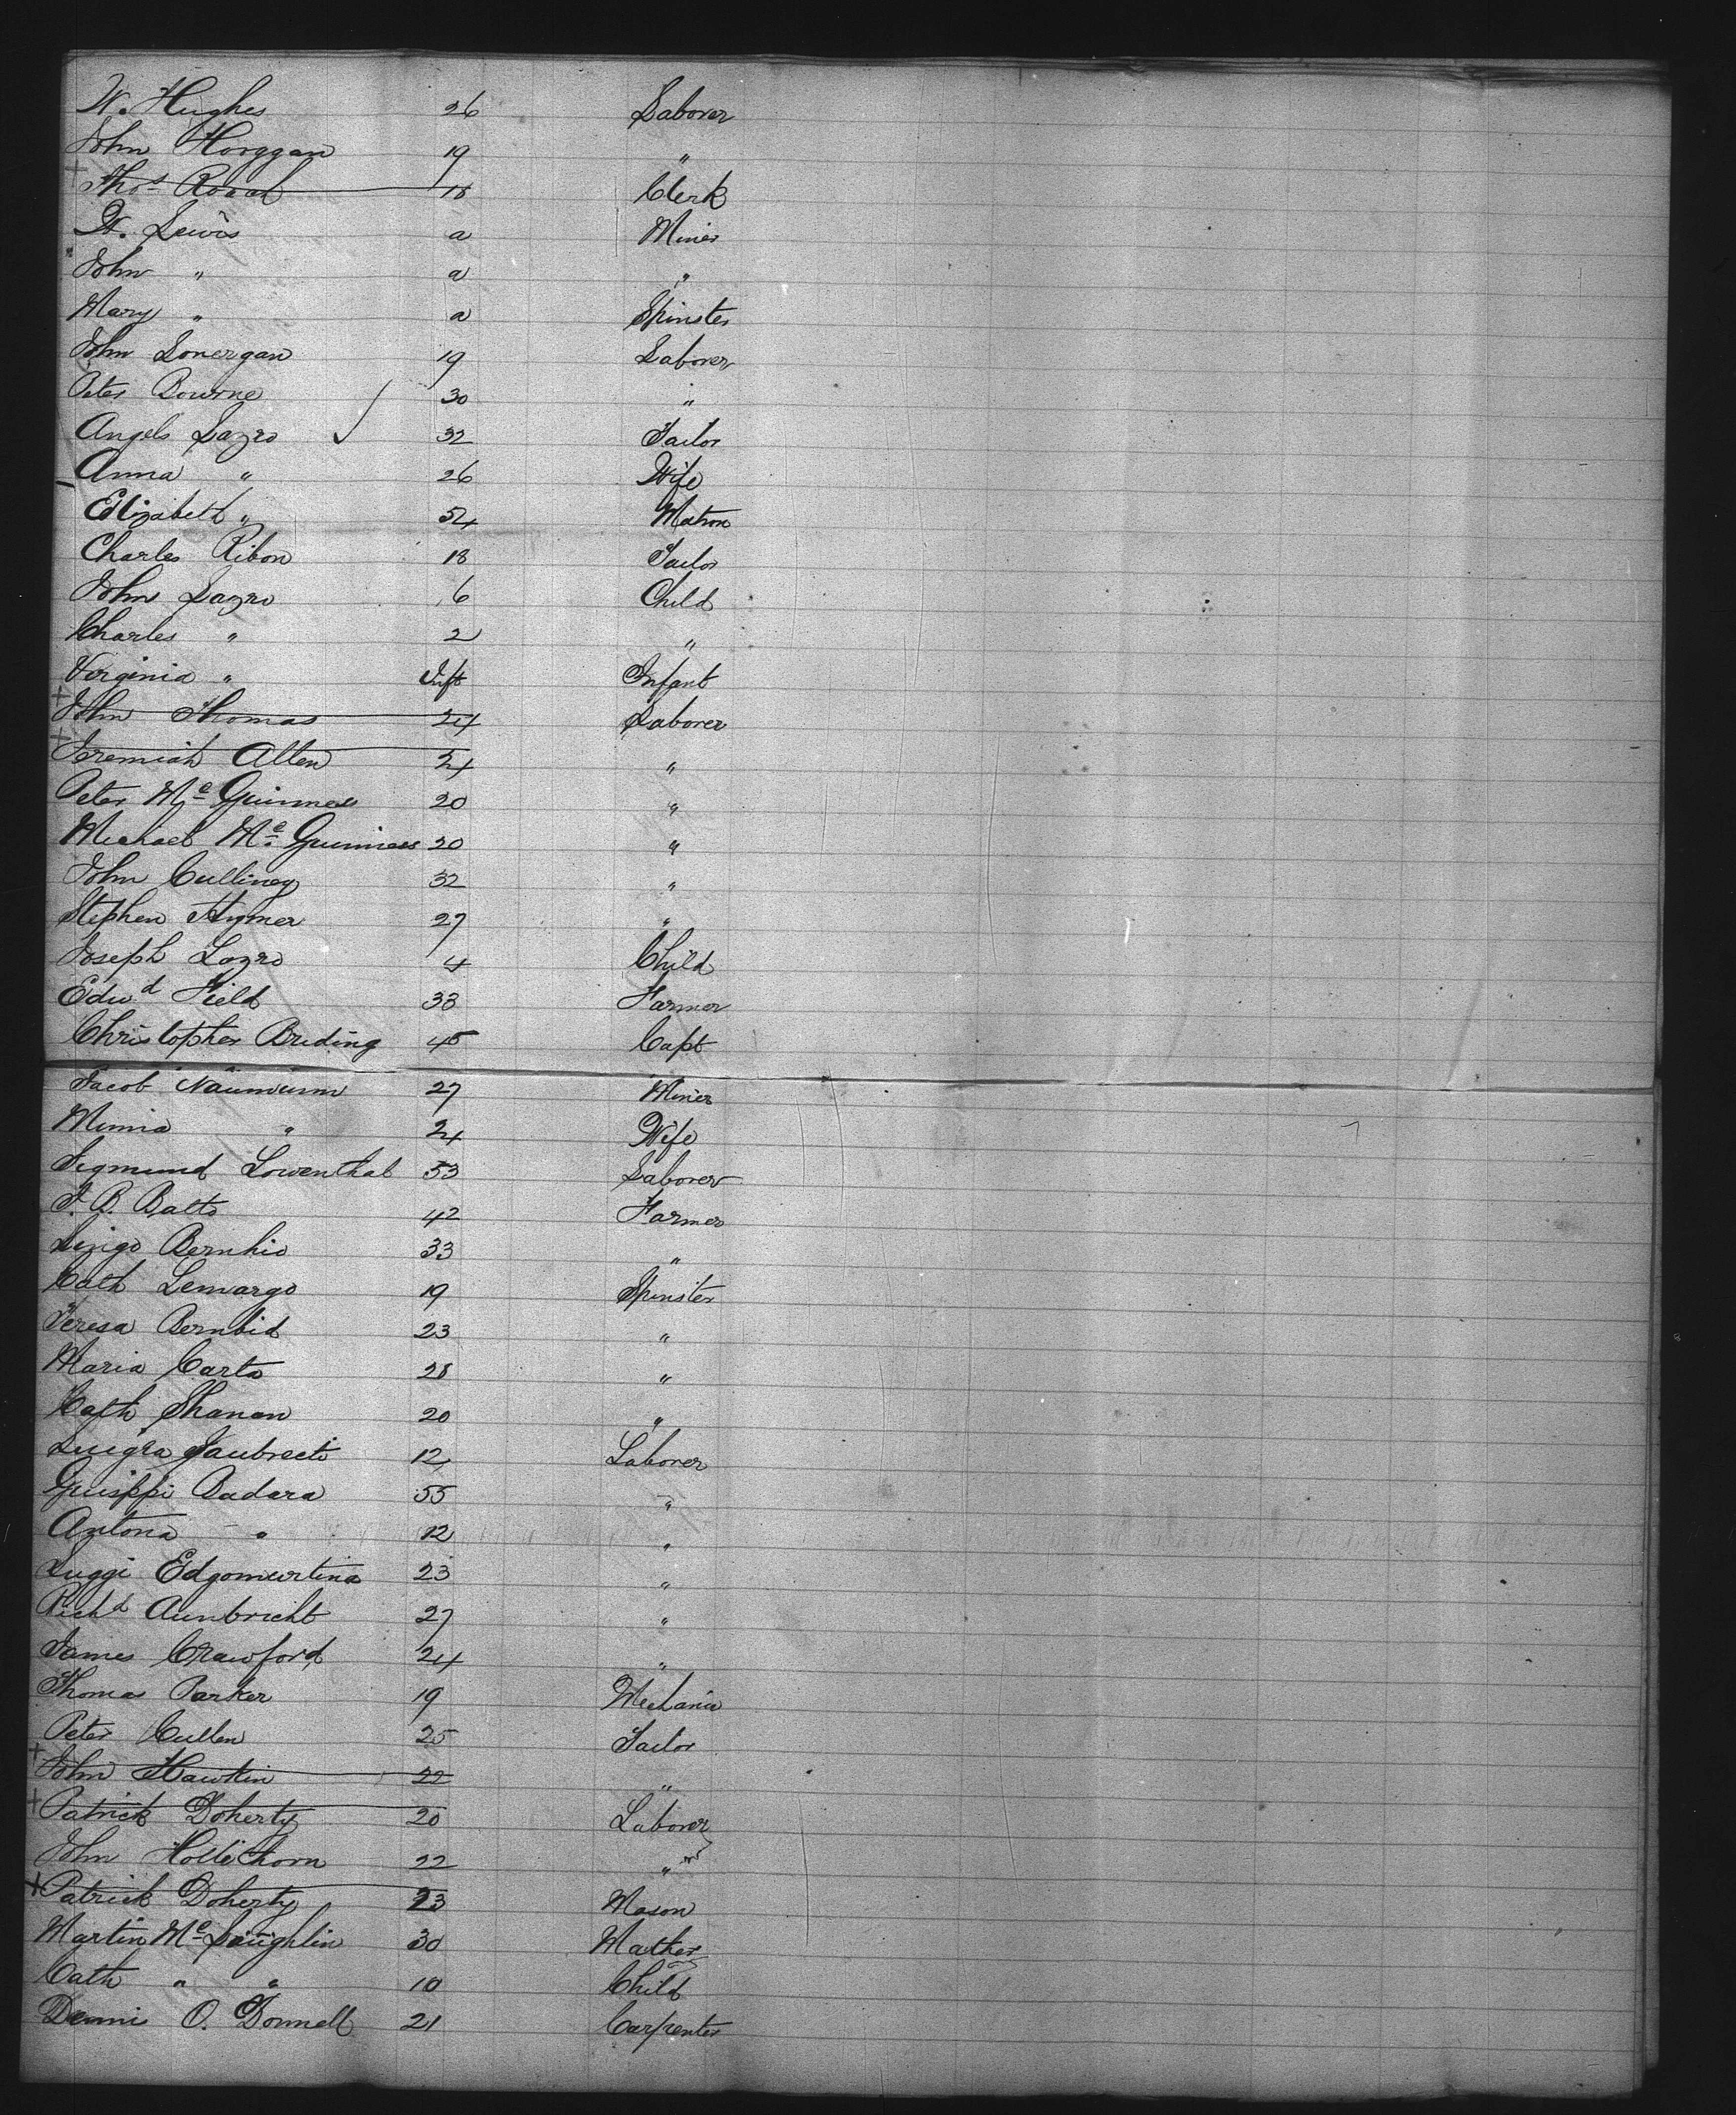 W. Hughes 26 Laborer
John Horggan 19 "
Thos Roach 18 Clerk
W. Lewis a Miner
John " a "
Mary " a Spinster
John Lonergan 19 Laborer
Peter Bourne 30 "
Angelo Lazro 32 Tailor
Anna " 26 Wife
Elizabeth " 54 Matron
Charles Ribon 18 Tailor
John Lazro 6 Child
Charles " 2 "
Virginia " Inft Infant
John Thomas 24 Laborer
Jeremiah Allen 24 "
Peter Mc Guinness 20 "
Michael Mc Guinness 20 "
John Culliney 32 "
Stephen Hymer 27 "
Joseph Lazro 4 Child
Edwd Field 33 Farmer
Christopher Bruding 45 Capt
Jacob Naumum 27 Miner
Minna " 24 Wife
Sigmund Lowenthal 53 Laborer
J. B. Balto 42 Farmer
Bernhio 33 "
Cath Lemargo 19 Spinster
Teresa Bernbid 23 "
Maria Carta 28 "
Cath Shanan 20 "
Luigia 12 Laborer
Guisppi Badara 55 "
Antona " 12 "
Luggi Edgomurtina 23 "
Richd Aunbricht 27 "
James Crawford 24 "
Thomas Parker 19 Mechanic
Peter Cullen 25 Tailor
John Hawkin 22 "
Patrick Doherty 20 Laborer
John Hollethorn 22 "
Patrick Doherty 23 Mason
Martin Mc Laughlin 30 Mather
Cath " " 10 Child
Dennis O. Donnell 21 Carpenter